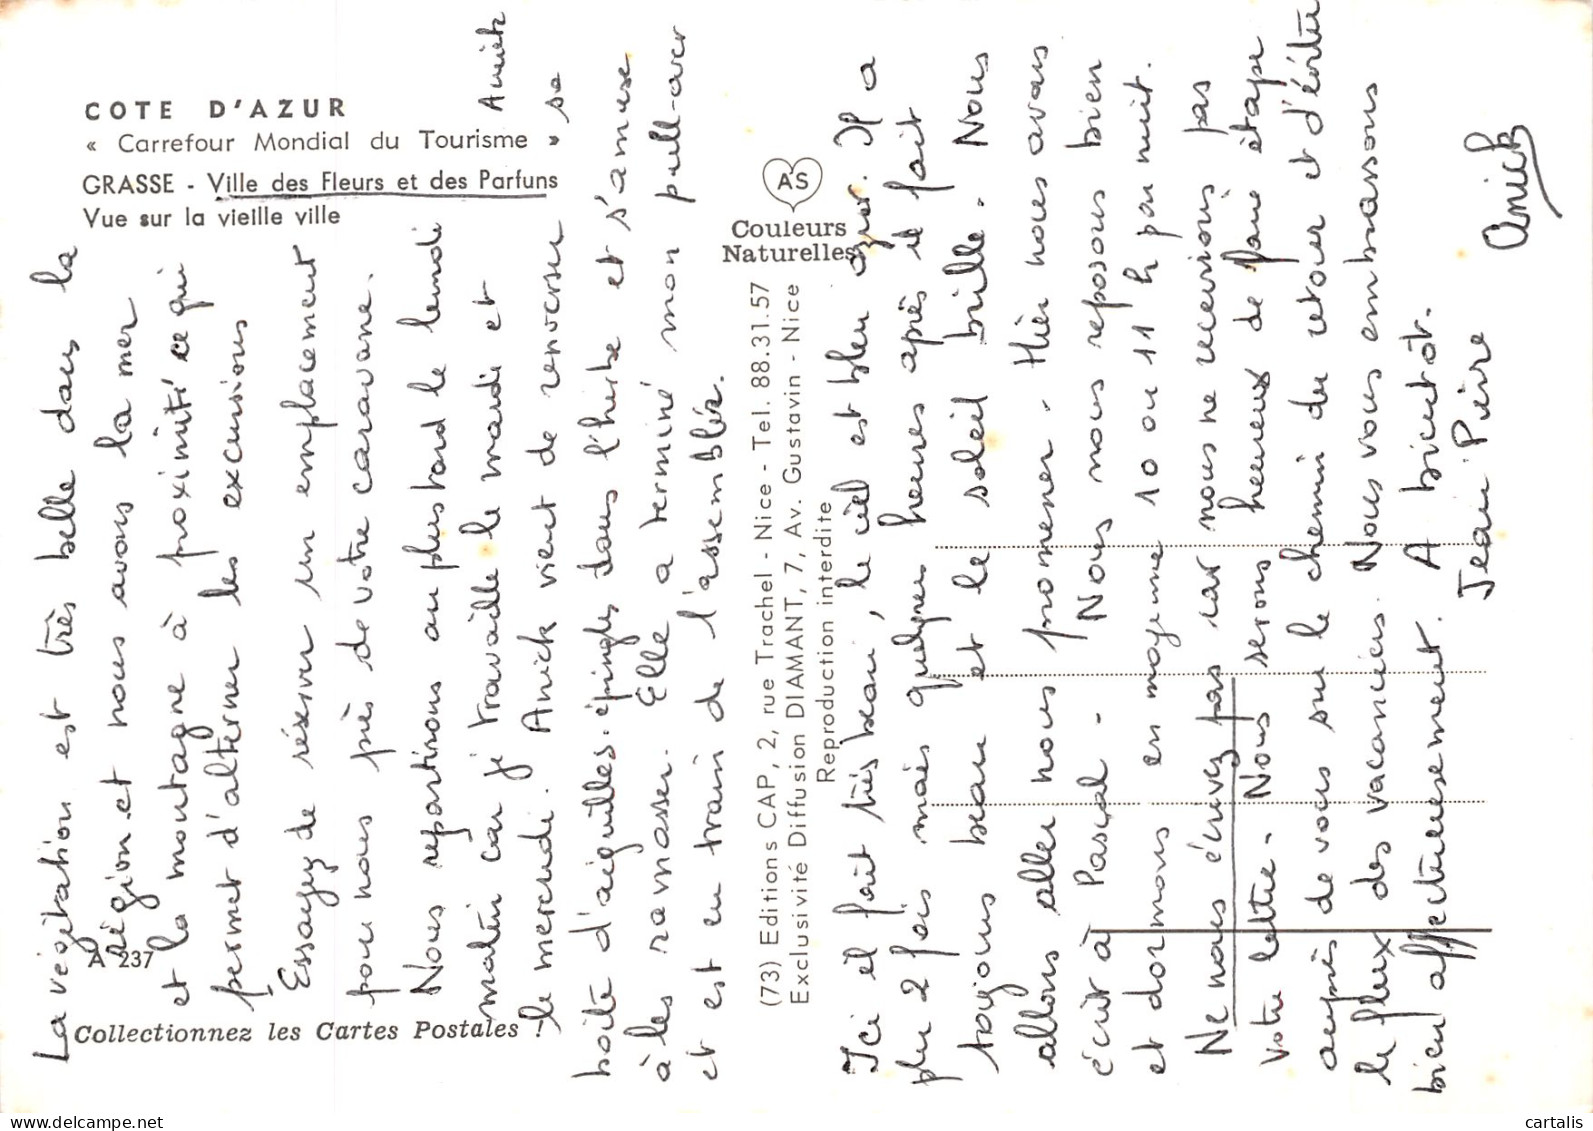 COTE D'AZUR
« Carrefour Mondial du Tourisme »
GRASSE - Ville des Fleurs et des Parfuns
Vue sur la vieille ville
A 237
Collectionnez les Cartes Postales !
AS
Couleurs
Naturelles
(73) Editions CAP, 2, rue Trachel - Nice - Tel. 88.31.57
Exclusivité Diffusion DIAMANT, 7, Av. Gustavin - Nice
Reproduction interdite
La végétation est très belle dans la
région et nous avons la mer
et la montagne à proximité ce qui
permet d'alterner les excursions
Essayez de réserver un emplacement
pour nous près de votre caravane.
Nous repartirons au plus tard le lundi
matin car je travaille le mardi et
le mercredi. Anick vient de renverser sa
boite d'aiguilles épingles dans l'herbe et s'amuse
à les ramasser. Elle a terminé mon pull-over
et est en train de l'assembler.
Anick
Ici il fait très beau, le ciel est bleu azur. Il a
plu 2 fois mais quelques heures après il fait
toujours beau et le soleil brille. Nous
allons aller nous promener. Hier nous avons
écrit à Pascal - Nous nous reposons bien
et dormons en moyenne 10 ou 11 h par nuit.
Ne nous écrivez pas car nous ne recevrions pas
votre lettre. Nous serons heureux de faire étape
auprès de vous sur le chemin du retour et d'éviter
le flux des vacanciers. Nous vous embrassons
bien affectueusement. A bientôt.
Jean Pierre
Anick
cartalis
www.delcampe.net